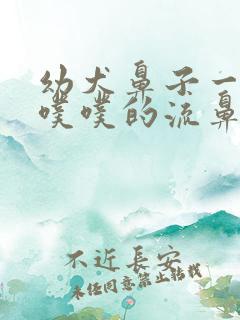 幼犬鼻子一
噗噗的流鼻
不近長安
未经同意禁止转载